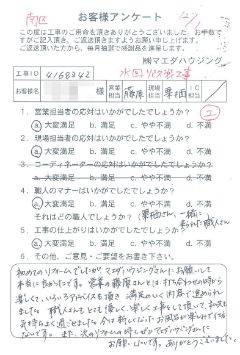 南区
お客様アンケート
この度は工事のご用命を頂きありがとうございました。お手数で
すがご記入頂き、ご返送頂きますようお願い申し上げます。
ご返送頂いた方から、毎月抽選で感謝品を進呈します。
㈱マエダハウジング
工事ID 4168342 水回りリフォーム工事
氏名 様 営業担当 藤原 現場担当 栗栖 IC担当
1. 営業担当者の応対はいかがでしたでしょうか? ②
a. 大変満足 b. 満足 c. やや不満 d. 不満
2. 現場担当者の応対はいかがでしたでしょうか?
a. 大変満足 b. 満足 c. やや不満 d. 不満
3. コーディネーターの応対はいかがでしたでしょうか?
a. 大変満足 b. 満足 c. やや不満 d. 不満
4. 職人のマナーはいかがでしたでしょうか?
a. 大変満足 b. 満足 c. やや不満 d. 不満
それはどの職人でしょうか?(栗栖さん、一緒に来られた職人さん)
5. 工事の仕上がりはいかがでしたでしょうか?
a. 大変満足 b. 満足 c. やや不満 d. 不満
6. その他、ご意見・ご要望をお書き下さい。
初めてのリフォームでしたが マエダハウジングさんに お願いして
本当に良かったです。営業の藤原さんとは 打ち合わせの時から
楽しくて、いろいろアドバイスも頂き 満足のいく打ち合わせで進められ
ました。職人さんも とても優しく、楽しく
気持ちよく過ごせました。今は 新しくなったお風呂が楽しみで
ないです。また、次のリフォームの時も ぜひマエダハウジングに
お願いしたいです。ありがとうございました。